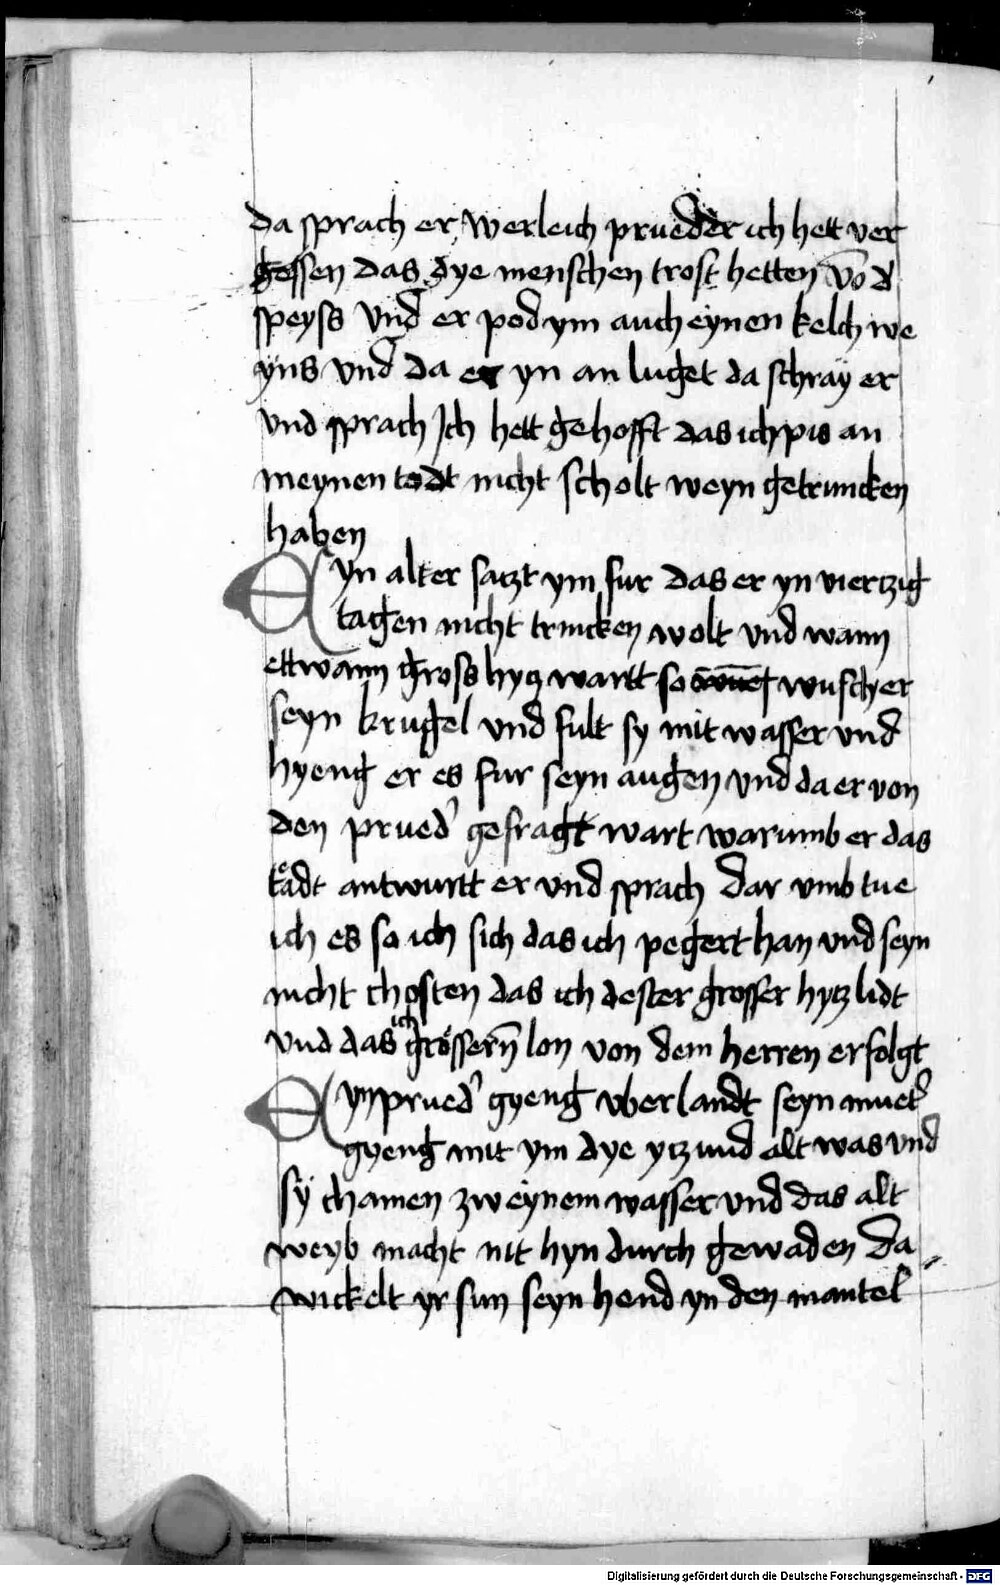 da sprach er werleich prueder ich hett ver
gessen das dye menschen trost hetten vo̅ d
speyss vnd er pod ym auch eynen kelch we
yns vnd da er yn an luget da schray er
vnd sprach Ich hett gehofft das ich pis an
meynen todt nicht scholt weyn getruncken
haben
Eyn alter satzt ym fur das er yn viertzig
tagen nicht trincken wolt vnd wann
ettwann gross hytz wartt so wuscher
seyn krugel vnd fult sy mit wasser vnd
hyeng er es fur seyn augen vnd da er von
den prued' gefragt wart warumb er das
taͤdt antwurtt er vnd sprach dar vmb tue
ich es so ich sich das ich pegert han vnd seyn
nicht chosten das ich dester grosser hytz lidt
vnd das ich grössern̅ lon von dem herren erfolgt
Eyn prued' gyeng vber landt seyn muet'
gyeng mit ym dye ytzund alt was vnd
sÿ chamen zw eynem wasser vnd das alt
weyb macht nit hyn durch gewaden da
wickelt yr sun seyn hend yn den mantel
Digitalisierung gefördert durch die Deutsche Forschungsgemeinschaft - DFG